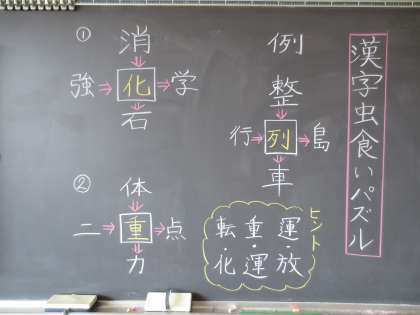 漢字虫食いパズル
例
整
行列島
車
ヒント
運・放
重・運
転・化
①
消
強化学
石
②
体
二重点
力